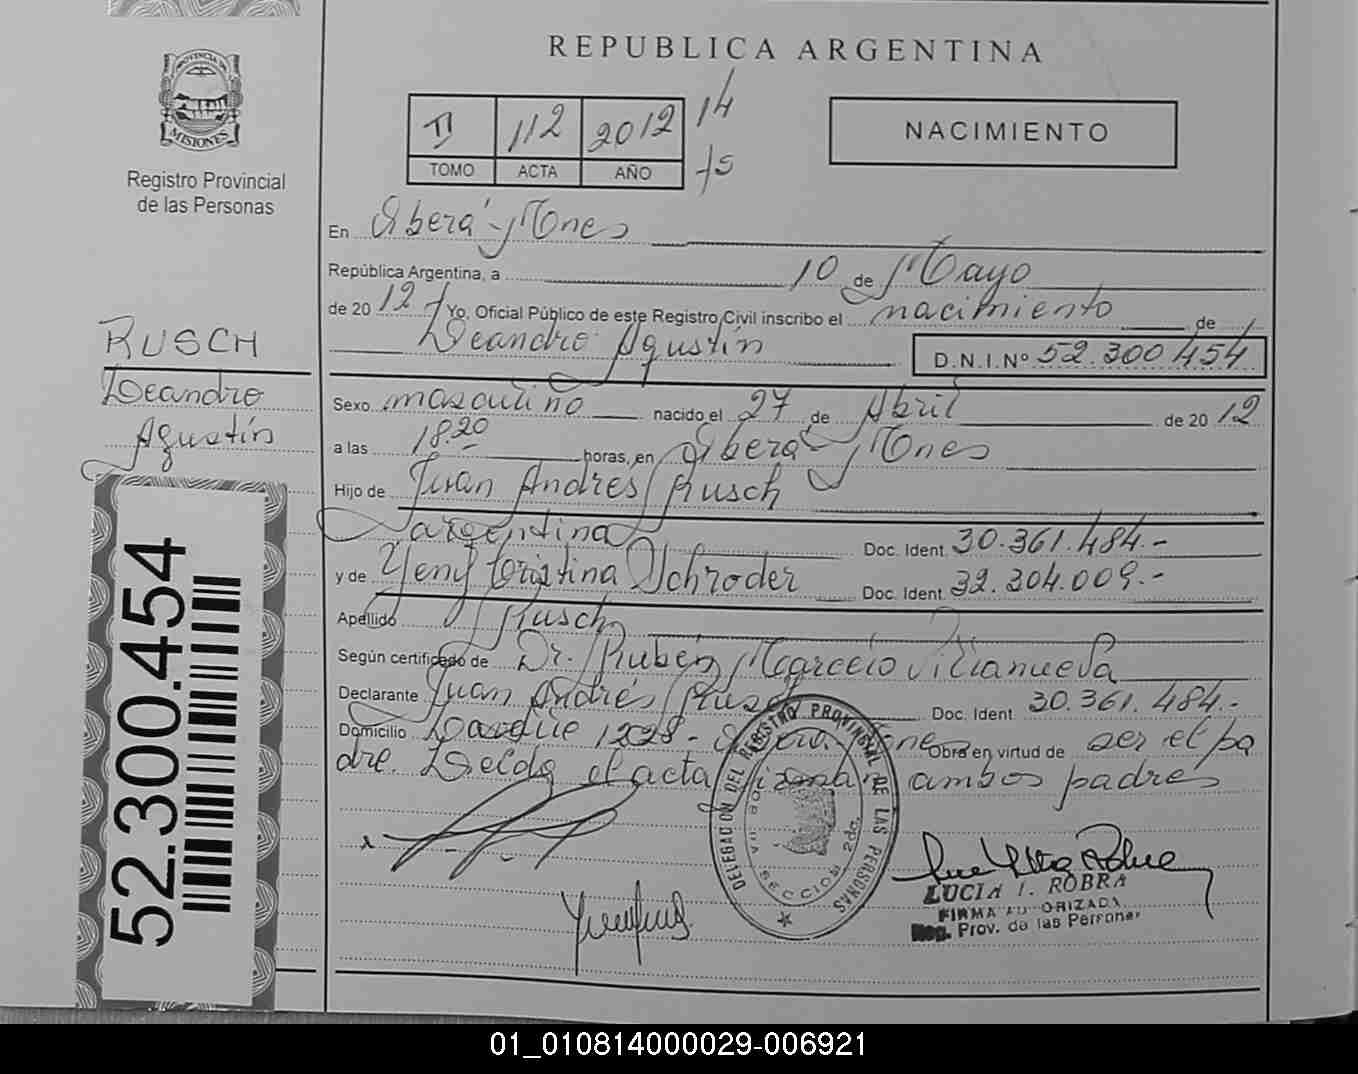 REPUBLICA ARGENTINA
PROVINCIA DE
MISIONES
Registro Provincial
de las Personas
II 112 2012 14
TOMO ACTA AÑO 15
NACIMIENTO
En Oberá - Mnes
República Argentina, a 10 de Mayo
de 2012 Yo, Oficial Público de este Registro Civil inscribo el nacimiento de
Leandro Agustín D.N.I.Nº 52.300.454
RUSCH
Leandro
Agustín
52.300.454
Sexo masculino nacido el 27 de Abril de 2012
a las 18.20 horas, en Oberá - Mnes
Hijo de Juan Andrés Rusch
argentina Doc. Ident. 30.361.484.-
y de Yeny Cristina Schroder Doc. Ident. 32.304.009.-
Apellido Rusch
Según certificado de Dr. Rubén Marcelo Villanueva
Declarante Juan Andrés Rusch Doc. Ident. 30.361.484.-
Domicilio 1228 - Mnes Obra en virtud de ser el pa
dre. Leída el acta firman ambos padres
DELEGACION DEL REGISTRO PROVINCIAL DE LAS PERSONAS
SECCION 2da.
LUCIA I. ROBRA
FIRMA AUTORIZADA
Reg. Prov. de las Personas
01_010814000029-006921